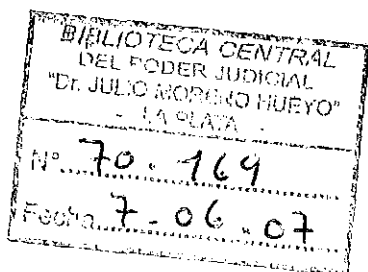 BIBLIOTECA CENTRAL
DEL PODER JUDICIAL
"Dr. JULIO MORENO HUEYO"
- LA PLATA -
Nº. 70.169
Fecha 7-06-07